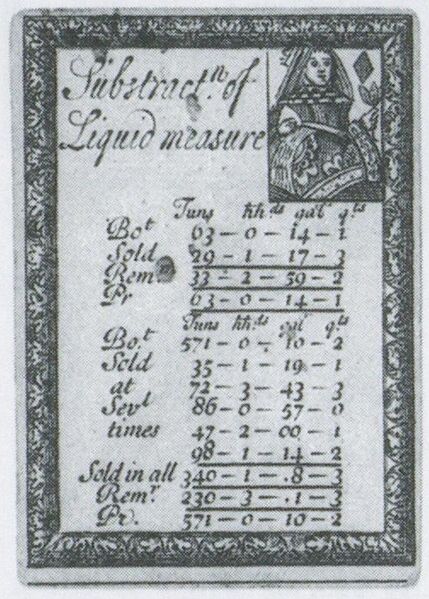 Substract.ⁿ of
Liquid measure
Tuns hh:ds gal: q:ts
Bo.t 63 — 0 — 14 — 1
Sold 29 — 1 — 17 — 3
Rem 33 — 2 — 59 — 2
Pr 63 — 0 — 14 — 1
Tuns hh:ds gal q:ts
Bo.t 571 — 0 — 10 — 2
Sold 35 — 1 — 19 — 1
at 72 — 3 — 43 — 3
Sev.l 86 — 0 — 57 — 0
times 47 — 2 — 00 — 1
98 — 1 — 14 — 2
Sold in all 340 — 1 — .8 — 3
Rem.r 230 — 3 — .1 — 3
Pr. 571 — 0 — 10 — 2